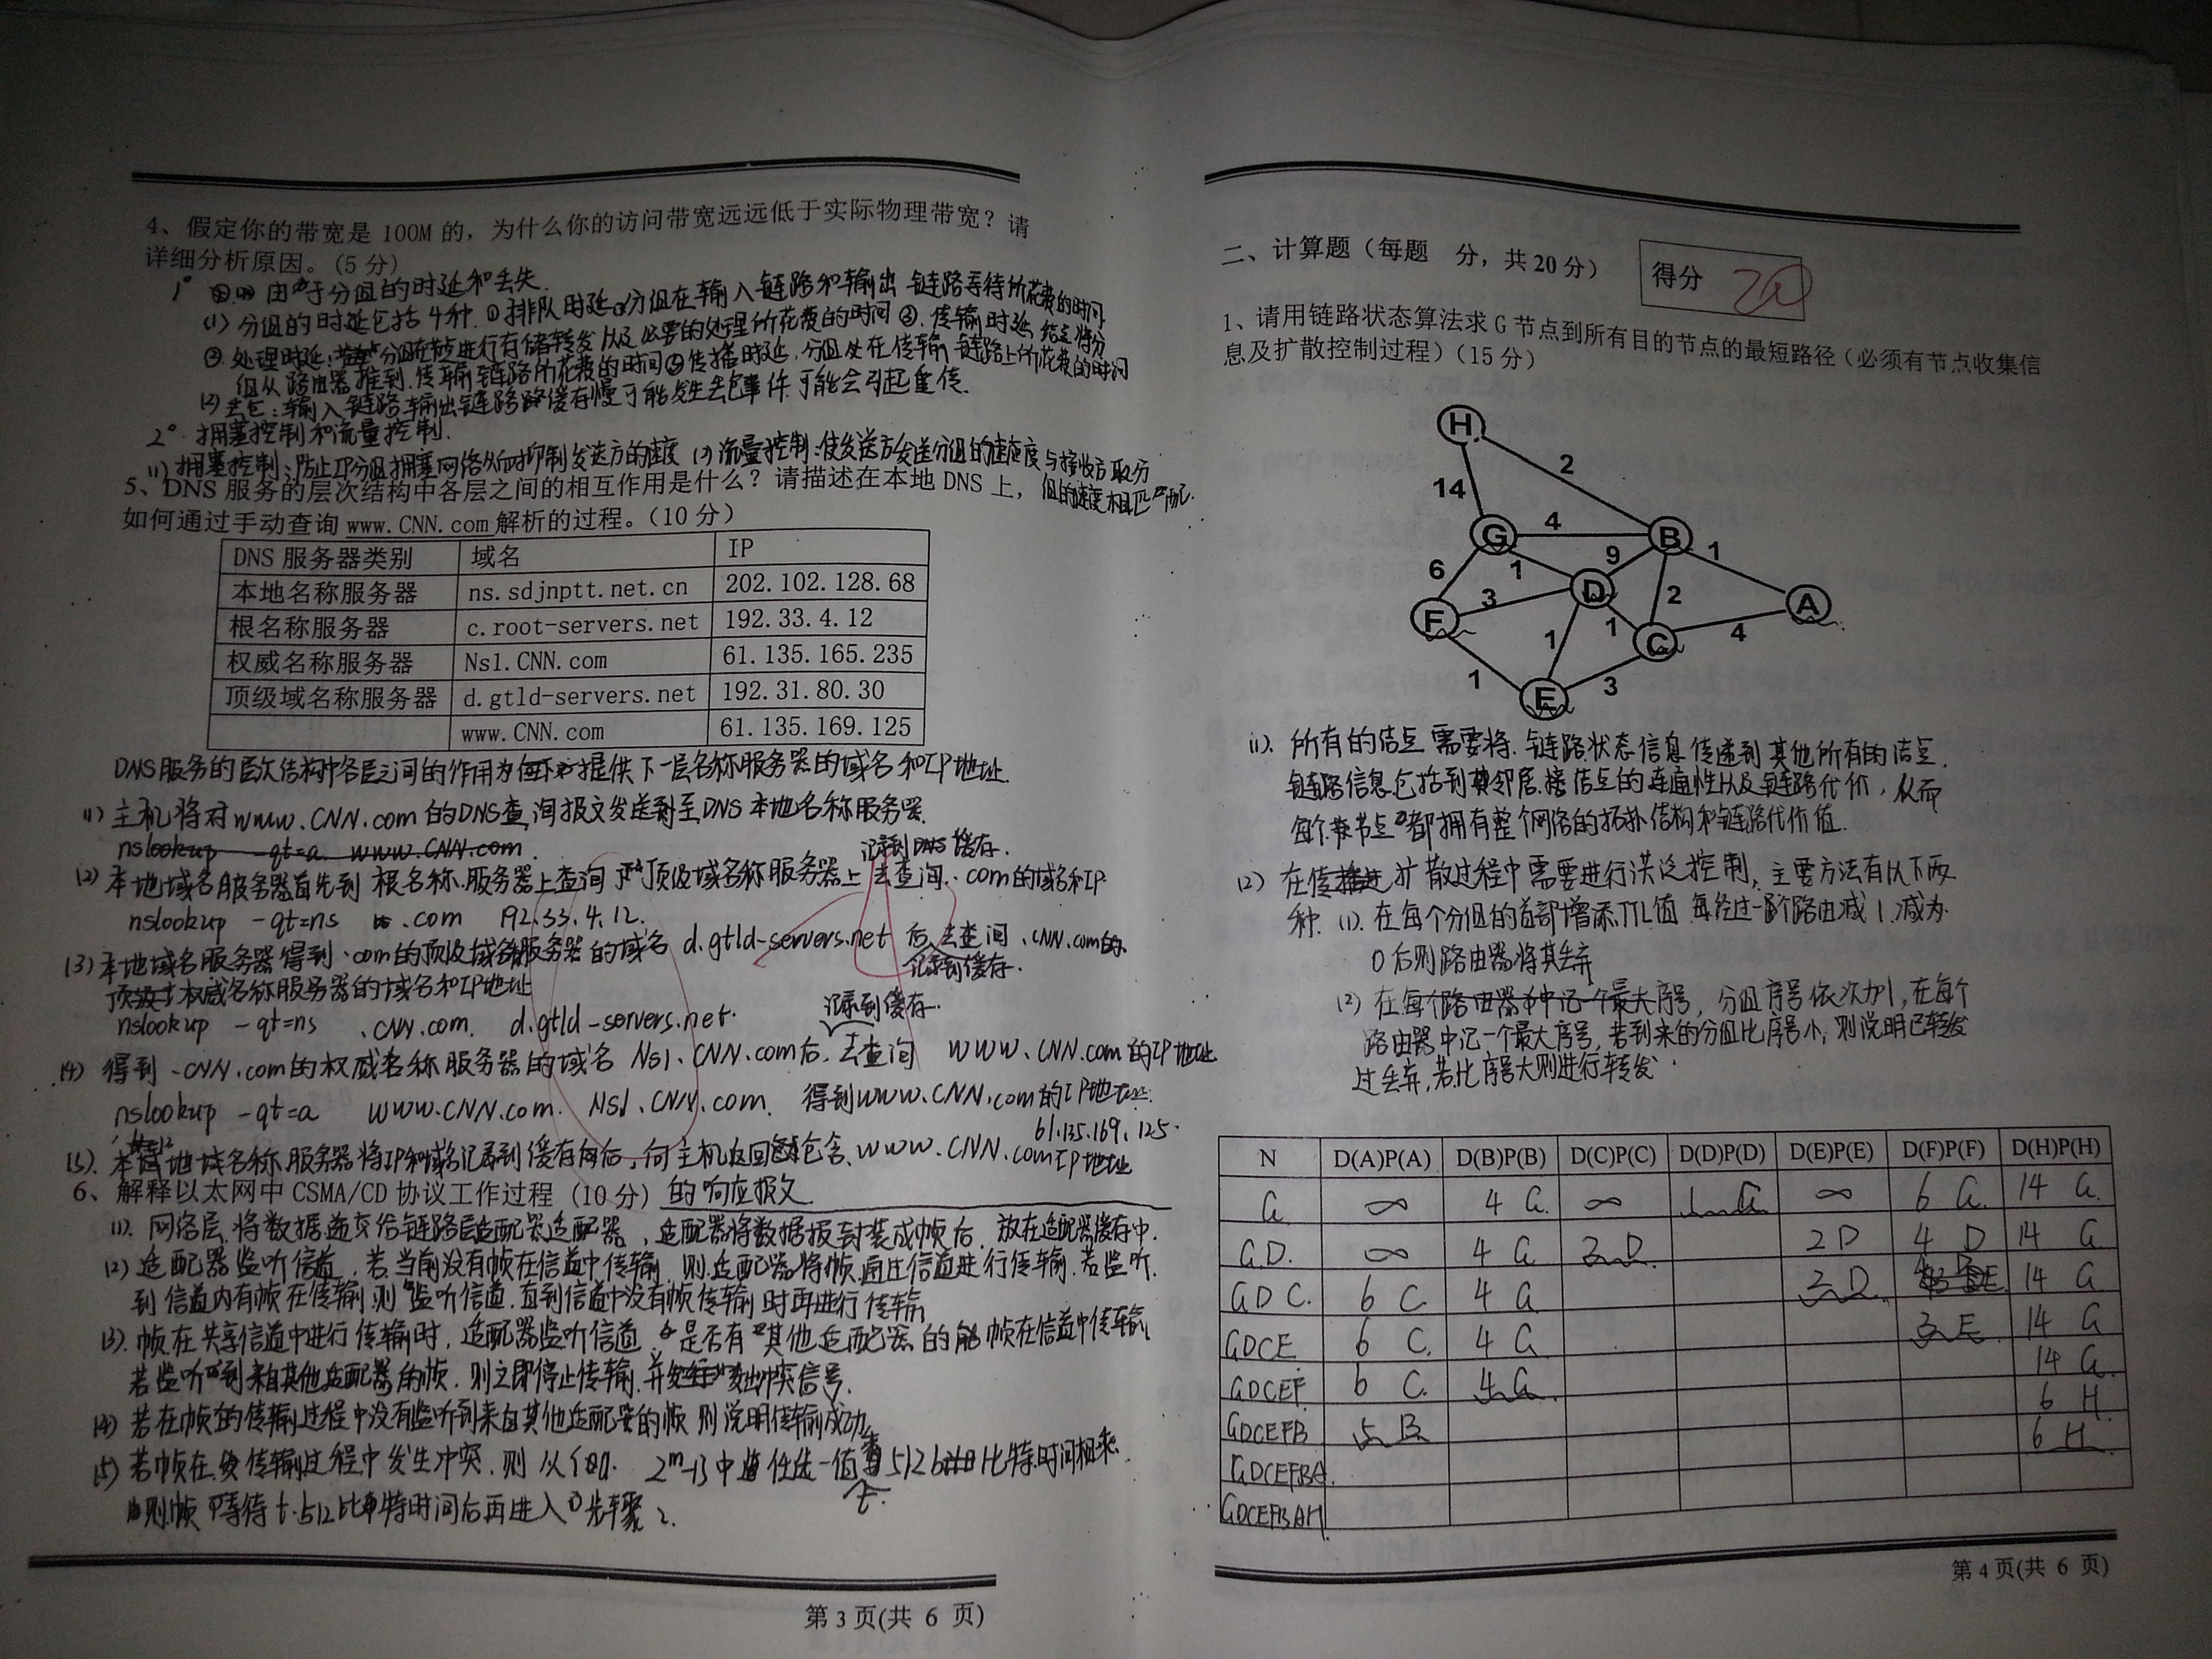 4、假定你的带宽是 100M 的，为什么你的访问带宽远远低于实际物理带宽？请
详细分析原因。（5 分）
1° 由于分组的时延和丢失.
(1) 分组的时延包括4种. ①排队时延. 分组在输入链路和输出链路等待所花费的时间
②处理时延: 分组在结点进行存储转发以及必要的处理所花费的时间 ③. 传输时延 结点将分
组从路由器推到传输链路所花费的时间 ④传播时延, 分组在传输链路上所花费的时间
(2) 丢包: 输入链路输出链路缓存慢可能发生丢包事件. 可能会引起重传.
2° 拥塞控制和流量控制.
(1) 拥塞控制: 防止IP分组拥塞网络从而抑制发送方的速度 (2) 流量控制: 使发送方发送分组的速度与接收方取分
组的速度相匹配.
5、DNS 服务的层次结构中各层之间的相互作用是什么？请描述在本地 DNS 上，
如何通过手动查询 www.CNN.com 解析的过程。（10 分）
DNS 服务器类别 域名 IP
本地名称服务器 ns.sdjnptt.net.cn 202.102.128.68
根名称服务器 c.root-servers.net 192.33.4.12
权威名称服务器 Ns1.CNN.com 61.135.165.235
顶级域名称服务器 d.gtld-servers.net 192.31.80.30
www.CNN.com 61.135.169.125
DNS服务的层次结构中各层之间的作用为提供下一层名称服务器的域名和IP地址.
(1) 主机将对www.CNN.com的DNS查询报文发送到至DNS本地名称服务器.
nslookup -qt=a www.CNN.com.
记录到DNS缓存.
(2) 本地域名服务器首先到根名称服务器上查询顶级域名称服务器上去查询.com的域名和IP
nslookup -qt=ns .com 192.33.4.12.
(3) 本地域名服务器得到.com的顶级域名称服务器的域名 d.gtld-servers.net 后去查询.CNN.com的
记录到缓存.
权威名称服务器的域名和IP地址
nslookup -qt=ns .CNN.com. d.gtld-servers.net.
记录到缓存.
(4) 得到.CNN.com的权威名称服务器的域名 Ns1.CNN.com后, 去查询 www.CNN.com的IP地址
nslookup -qt=a www.CNN.com. Ns1.CNN.com. 得到www.CNN.com的IP地址:
61.135.169.125.
(5). 本地域名称服务器将IP和域名记录到缓存后, 向主机返回包含 www.CNN.com IP地址
6、解释以太网中 CSMA/CD 协议工作过程（10 分） 的响应报文.
(1). 网络层将数据递交给链路层适配器, 适配器将数据报封装成帧后, 放在适配器缓存中.
(2) 适配器监听信道, 若当前没有帧在信道中传输, 则适配器将帧通过信道进行传输. 若监听
到信道内有帧在传输, 则监听信道, 直到信道中没有帧传输时再进行传输
(3). 帧在共享信道中进行传输时, 适配器监听信道, 是否有其他适配器的帧在信道中传输,
若监听到来自其他适配器的帧, 则立即停止传输, 并发出冲突信号.
(4) 若在帧的传输过程中没有监听到来自其他适配器的帧 则说明传输成功.
(5) 若帧在传输过程中发生冲突, 则从{0,1. 2^m-1}中任选一值 乘 512 比特时间相乘.
t.
则帧等待 t·512 比特时间后再进入 步骤 2.
第 3 页(共 6 页)
二、计算题（每题 分，共20分）
得分 20
1、请用链路状态算法求 G 节点到所有目的节点的最短路径（必须有节点收集信
息及扩散控制过程）（15 分）
H
2
14
G 4 B
9 1
6 1
D A
3 2
F
1 1 C 4
1 3
E
(1). 所有的结点需要将链路状态信息传递到其他所有的结点.
链路信息包括到其邻居接结点的连通性以及链路代价, 从而
每个节点都拥有整个网络的拓扑结构和链路代价值.
(2) 在扩散过程中需要进行洪泛控制, 主要方法有以下两
种. (1). 在每个分组的首部增添TTL值 每经过一个路由减1. 减为
0后则路由器将其丢弃
(2) 在每个路由器中记一个最大序号, 分组序号依次加1, 在每个
路由器中记一个最大序号, 若到来的分组比序号小, 则说明已转发
过丢弃, 若比序号大则进行转发.
N D(A)P(A) D(B)P(B) D(C)P(C) D(D)P(D) D(E)P(E) D(F)P(F) D(H)P(H)
G ∞ 4 G. ∞ 1 G ∞ 6 G. 14 G.
G.D. ∞ 4 G 2 D. 2D 4 D 14 G
GDC. 6 C. 4 G 2 D. 4 D 14 G
GDCE 6 C. 4 G 3 E. 14 G
GDCEF. 6 C. 4 G. 14 G.
GDCEFB 5 B. 6 H.
GDCEFBA. 6 H.
GDCEFBAH
第 4 页(共 6 页)